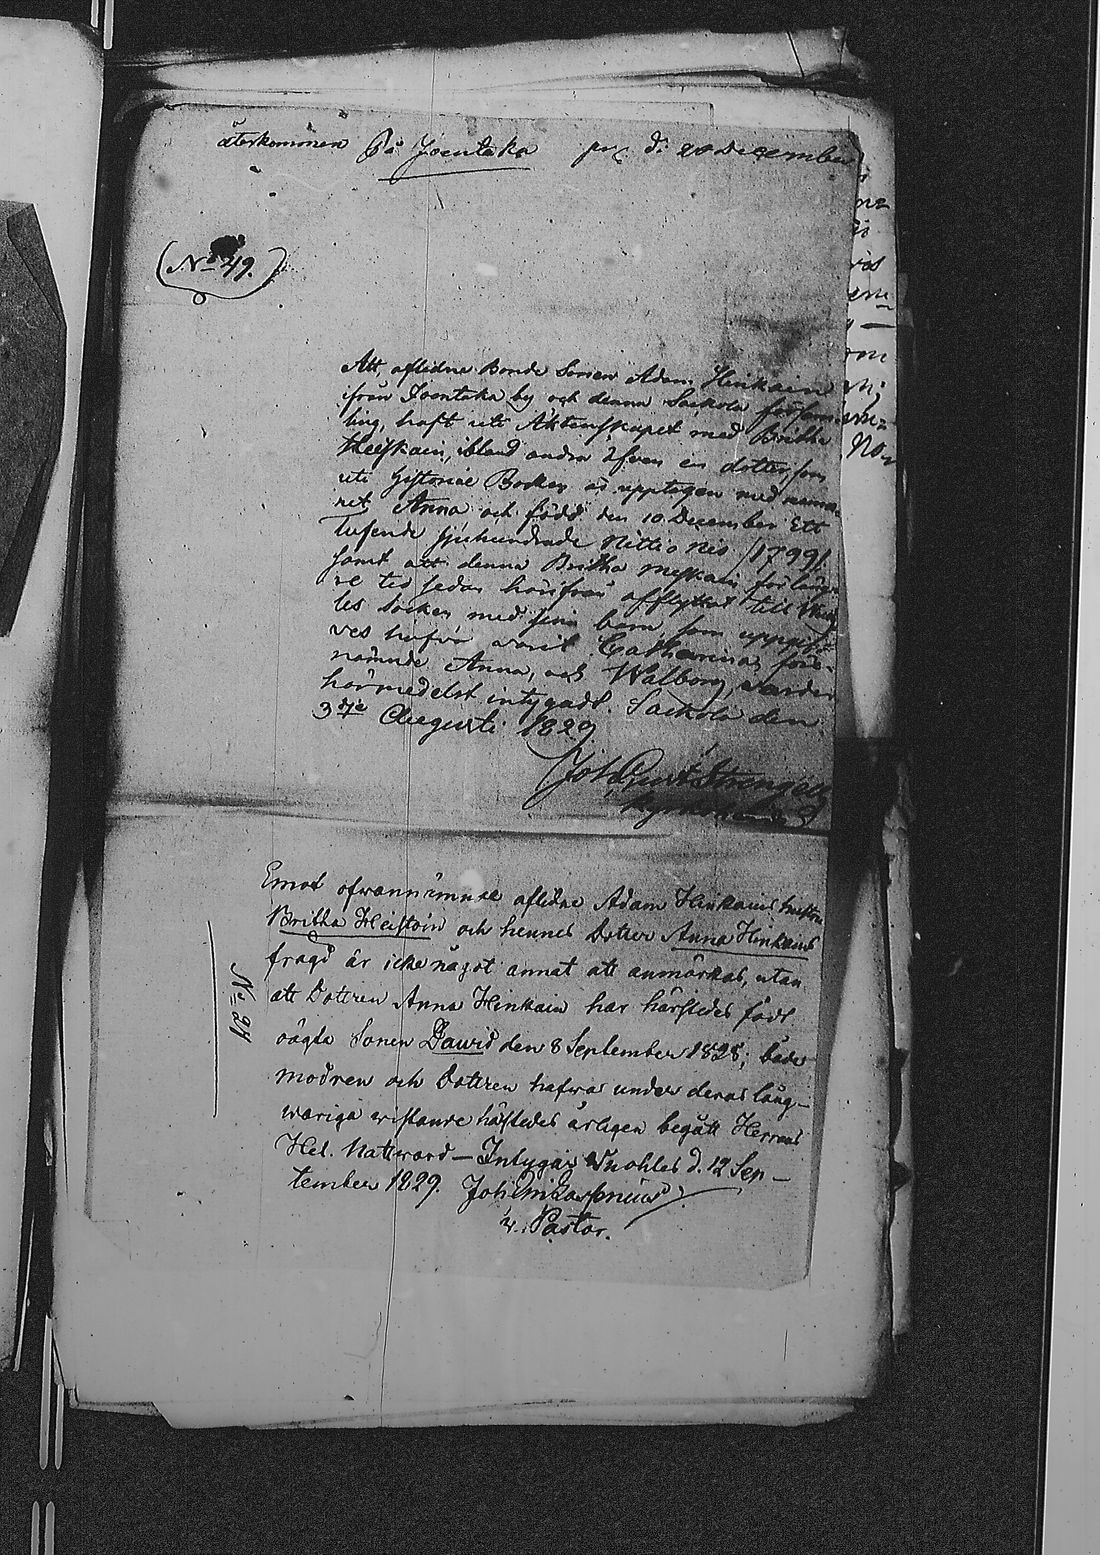 återkommen På Joentaka pr d: 20 December
(No 49.)
Att aflidne Bonde Sonen Adam Heinkain
ifrån Joentaka by och denna Sackola församl
ling, haft uti Äktenskapet med Britha
Heiskain, ibland andra äfven en dotter, som
uti Historiae Boken är upptagen med namn
net Anna och född den 10 December Ett
tusende sjuhundrade Nittio Nio /1799/.
samt att denna Britha Heiskain för läng
re tid sedan härifrån afflyttat till
les Socken med sina barn, som uppgif
ves hafva varit Catharina, före-
nämnde Anna, och Walborg, varder
härmedelst intygadt. Sackola den
3dje Augusti 1829
Joh. Strengell
Emot ofvannämnde aflidne Adam Heinkains hustru
Britha Heiskain och hennes Dotter Anna Heinkains
frägd är icke något annat att anmärkas, utan
att Dottren Anna Heinkain har härstedes födt
oägta Sonen David den 8 September 1828; både
modren och Dottren hafva under deras lång-
variga vistande härstedes årligen begått Herrans
Hel. Nattvard – Intygar Nuohles d. 12 Sep-
tember 1829. Joh
v. Pastor.
No 24